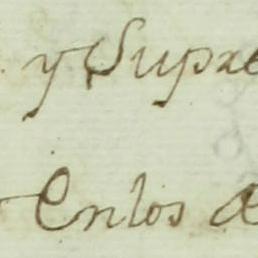 y Supre
En los